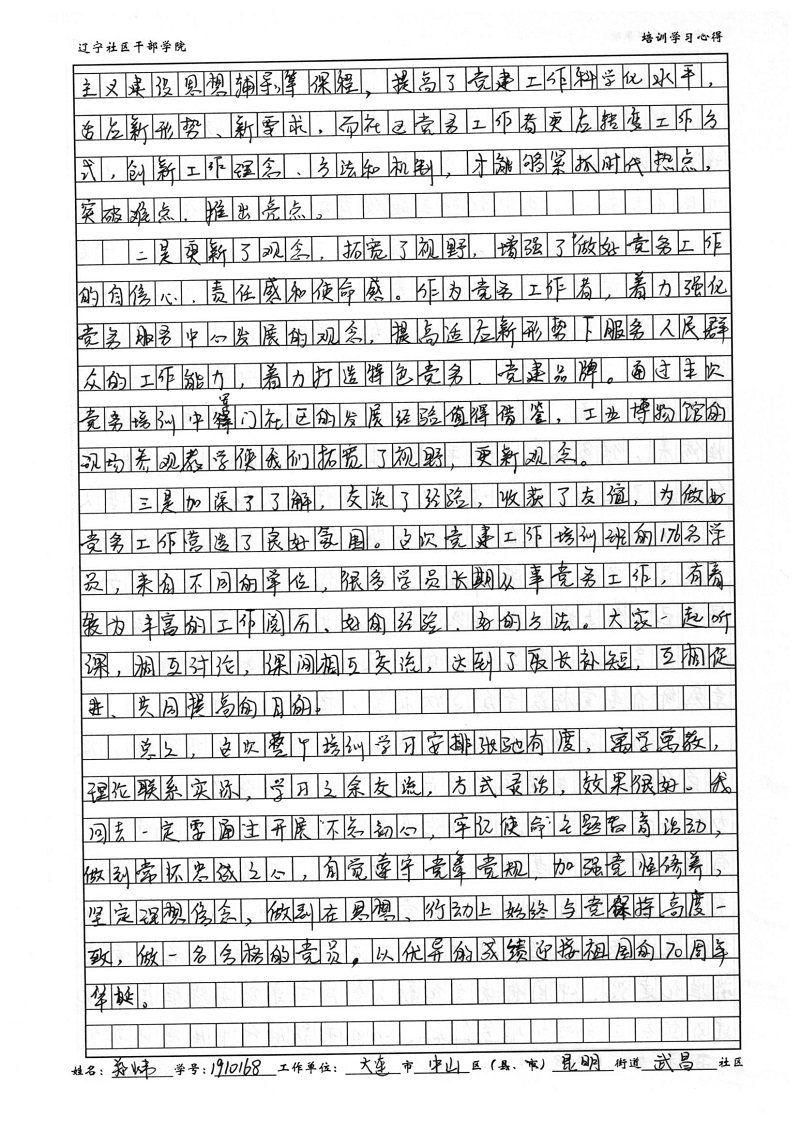 辽宁社区干部学院
培训学习心得
主义建设思想辅导等课程，提高了党建工作科学化水平，
适应新形势、新要求，而在达党务工作者更应转变工作方
式，创新工作理念、方法和机制，才能够紧抓时代热点，
突破难点，推出亮点。
二是更新了观念，拓宽了视野，增强了做好党务工作
的自信心、责任感和使命感。作为党务工作者，着力强化
党务服务中心发展的观念，提高适应新形势下服务人民群
众的工作能力，着力打造特色党务、党建品牌。通过本次
党务培训中铧门社区的发展经验值得借鉴，工业博物馆的
现场参观教学使我们拓宽了视野，更新观念。
三是加深了了解，交流了经验，收获了友谊，为做好
党务工作营造了良好氛围。这次党建工作培训班的176名学
员，来自不同的单位，很多学员长期从事党务工作，有着
较为丰富的工作阅历、好的经验、好的方法。大家一起听
课，相互讨论，课间相互交流，达到了取长补短，互相促
进、共同提高的目的。
总之，这次整个培训学习安排张弛有度，寓学寓教，
理论联系实际，学习之余交流，方式灵活，效果很好。我
回去一定要通过开展"不忘初心，牢记使命"主题教育活动，
做到常怀忠诚之心，自觉遵守党章党规，加强党性修养，
坚定理想信念，做到在思想、行动上始终与党保持高度一
致，做一名合格的党员。以优异的成绩迎接祖国的70周年
华诞。
姓名： 学号：1910168 工作单位：大连市中山区（县、市）昆明街道武昌社区